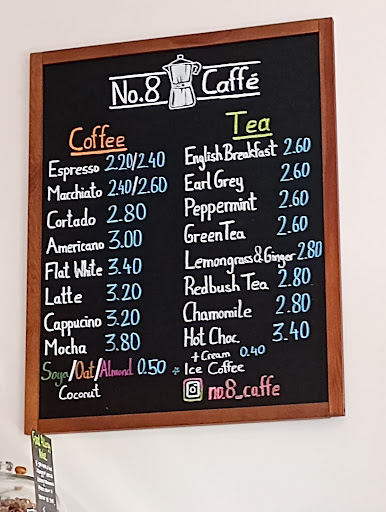 No.8 Caffé
Coffee
Espresso 2.20/2.40
Macchiato 2.40/2.60
Cortado 2.80
Americano 3.00
Flat White 3.40
Latte 3.20
Cappucino 3.20
Mocha 3.80
Soya/Oat/Almond 0.50
Coconut
Tea
English Breakfast 2.60
Earl Grey 2.60
Peppermint 2.60
Green Tea 2.60
Lemongrass & Ginger 2.80
Redbush Tea 2.80
Chamomile 2.80
Hot Choc. 3.40
+ Cream 0.40
Ice Coffee
no.8_caffe